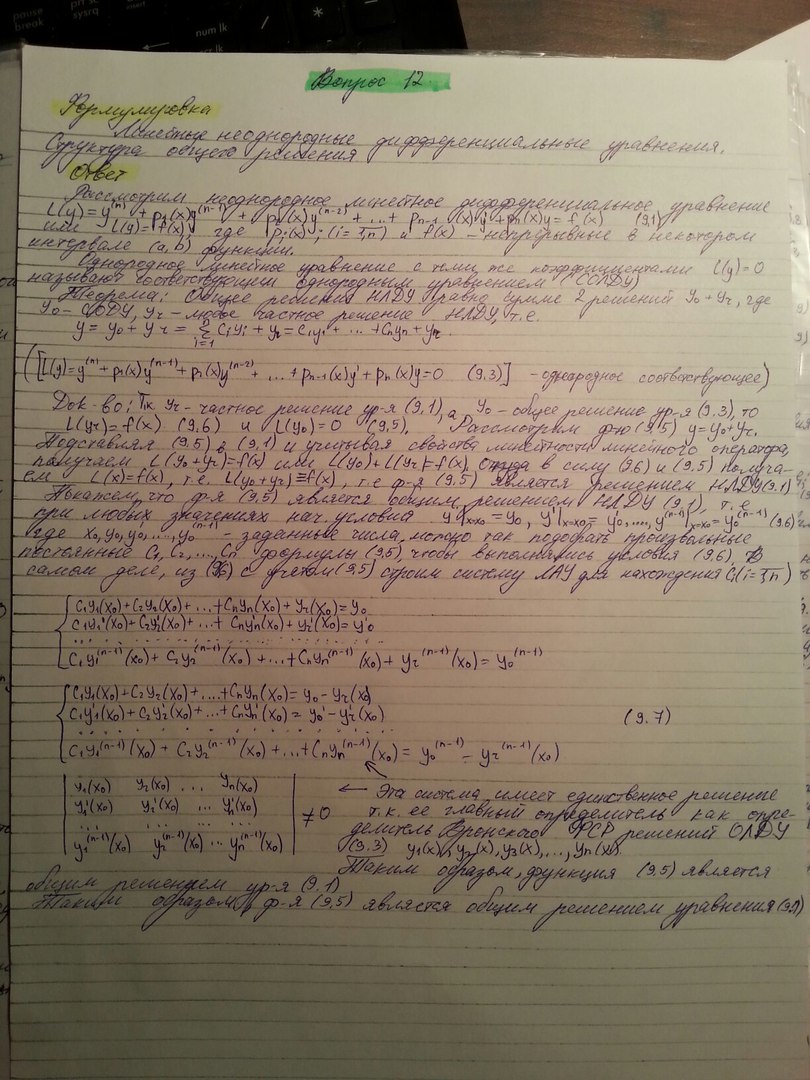 pause
break
sysrq
num lk
scr lk
Вопрос 12
Формулировка
Линейные неоднородные дифференциальные уравнения.
Структура общего решения
Ответ
Рассмотрим неоднородное линейное дифференциальное уравнение
L(y)=y⁽ⁿ⁾+p₁(x)y⁽ⁿ⁻¹⁾+p₂(x)y⁽ⁿ⁻²⁾+...+pₙ₋₁(x)y'+pₙ(x)y=f(x) (9.1)
или L(y)=f(x) где pᵢ(x); (i=1,n) и f(x) – непрерывные в некотором
интервале (a,b) функции.
Однородное линейное уравнение с теми же коэффициентами L(y)=0
называют соответствующим однородным уравнением (СОЛДУ)
Теорема: Общее решение НЛДУ равно сумме 2 решений y₀+yr, где
y₀ – СОДУ, yr – любое частное решение НЛДУ, т.е.
y=y₀+yr=∑ⁿᵢ₌₁ Cᵢyᵢ+yr=C₁y₁+...+Cₙyₙ+yr.
([L(y)=y⁽ⁿ⁾+p₁(x)y⁽ⁿ⁻¹⁾+p₂(x)y⁽ⁿ⁻²⁾+...+pₙ₋₁(x)y'+pₙ(x)y=0 (9.3)] – однородное соответствующее)
Док-во: Т.к. yr – частное решение ур-я (9.1), а y₀ – общее решение ур-я (9.3), то
L(yr)=f(x) (9.6) и L(y₀)=0 (9.5). Рассмотрим ф-ю (9.5) y=y₀+yr.
Подставляя (9.5) в (9.1) и учитывая свойства линейности линейного оператора,
получаем L(y₀+yr)=f(x) или L(y₀)+L(yr)=f(x). Отсюда в силу (9.6) и (9.5) получа-
ем L(x)=f(x), т.е. L(y₀+yr)≡f(x), т.е ф-я (9.5) является решением НЛДУ(9.1)
Покажем, что ф-я (9.5) является общим решением НЛДУ (9.1), т.е.
при любых значениях нач. условия y|x=x₀=y₀, y'|x=x₀=y₀',..., y⁽ⁿ⁻¹⁾|x=x₀=y₀⁽ⁿ⁻¹⁾ (9.6)
где x₀, y₀, y₀',..., y₀⁽ⁿ⁻¹⁾ – заданные числа, можно так подобрать произвольные
постоянные C₁, C₂,..., Cₙ формулы (9.5), чтобы выполнялись условия (9.6). В
самом деле, из (9.6) с учетом (9.5) строим систему ЛАУ для нахождения Cᵢ(i=1,n)
C₁y₁(x₀)+C₂y₂(x₀)+...+Cₙyₙ(x₀)+yr(x₀)=y₀
C₁y₁'(x₀)+C₂y₂'(x₀)+...+Cₙyₙ'(x₀)+yr'(x₀)=y₀'
..............................
C₁y₁⁽ⁿ⁻¹⁾(x₀)+C₂y₂⁽ⁿ⁻¹⁾(x₀)+...+Cₙyₙ⁽ⁿ⁻¹⁾(x₀)+yr⁽ⁿ⁻¹⁾(x₀)=y₀⁽ⁿ⁻¹⁾
C₁y₁(x₀)+C₂y₂(x₀)+...+Cₙyₙ(x₀)=y₀-yr(x₀)
C₁y₁'(x₀)+C₂y₂'(x₀)+...+Cₙyₙ'(x₀)=y₀'-yr'(x₀) (9.7)
..............................
C₁y₁⁽ⁿ⁻¹⁾(x₀)+C₂y₂⁽ⁿ⁻¹⁾(x₀)+...+Cₙyₙ⁽ⁿ⁻¹⁾(x₀)=y₀⁽ⁿ⁻¹⁾-yr⁽ⁿ⁻¹⁾(x₀)
y₁(x₀) y₂(x₀) ... yₙ(x₀)
y₁'(x₀) y₂'(x₀) ... yₙ'(x₀)
..............................
y₁⁽ⁿ⁻¹⁾(x₀) y₂⁽ⁿ⁻¹⁾(x₀) ... yₙ⁽ⁿ⁻¹⁾(x₀)
≠0
← Эта система имеет единственное решение
т.к. ее главный определитель как опре-
делитель Вронского ФСР решений ОЛДУ
(9.3) y₁(x), y₂(x), y₃(x),..., yₙ(x).
Таким образом, функция (9.5) является
общим решением ур-я (9.1)
Таким образом, ф-я (9.5) является общим решением уравнения (9.1)